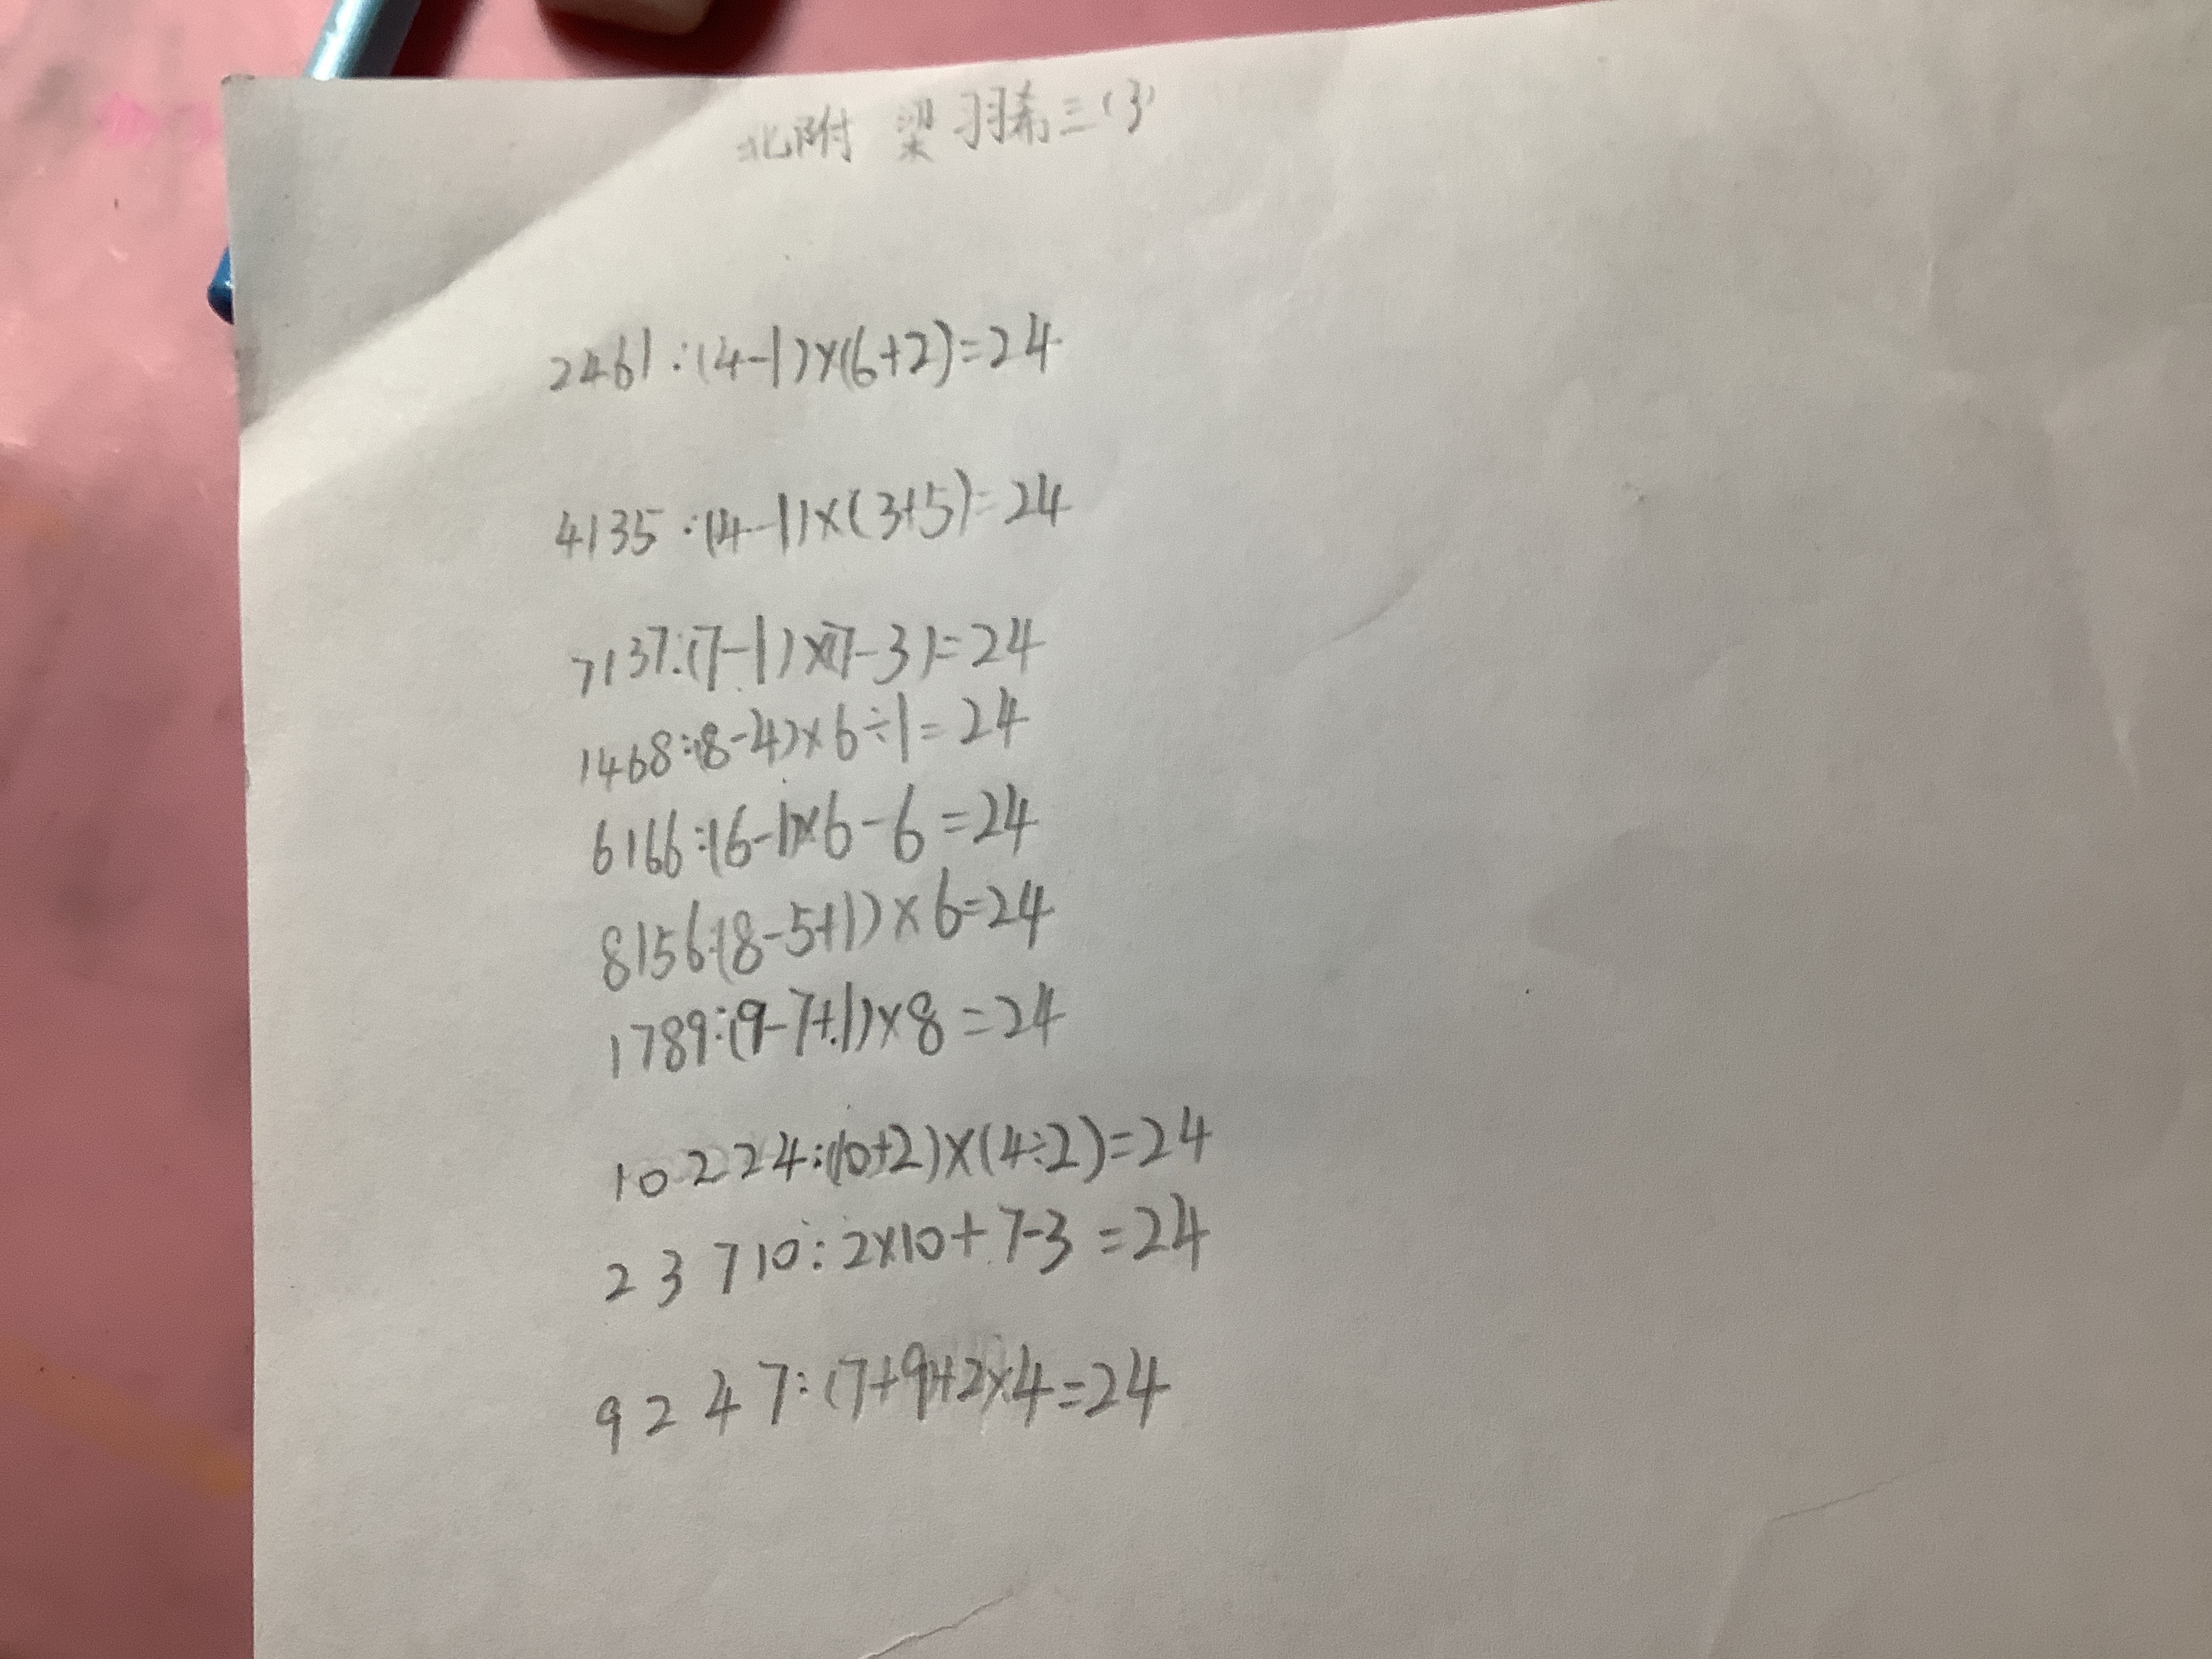 北附 梁羽稀三(3)
2461:(4-1)×(6+2)=24
4135:(4-1)×(3+5)=24
7137:(7-1)×(7-3)=24
1468:(8-4)×6÷1=24
6166:(6-1)×6-6=24
8156:(8-5+1)×6=24
1789:(9-7+1)×8=24
10 2 2 4:(10+2)×(4÷2)=24
2 3 7 10:2×10+7-3=24
9 2 4 7:(7+9)+2×4=24